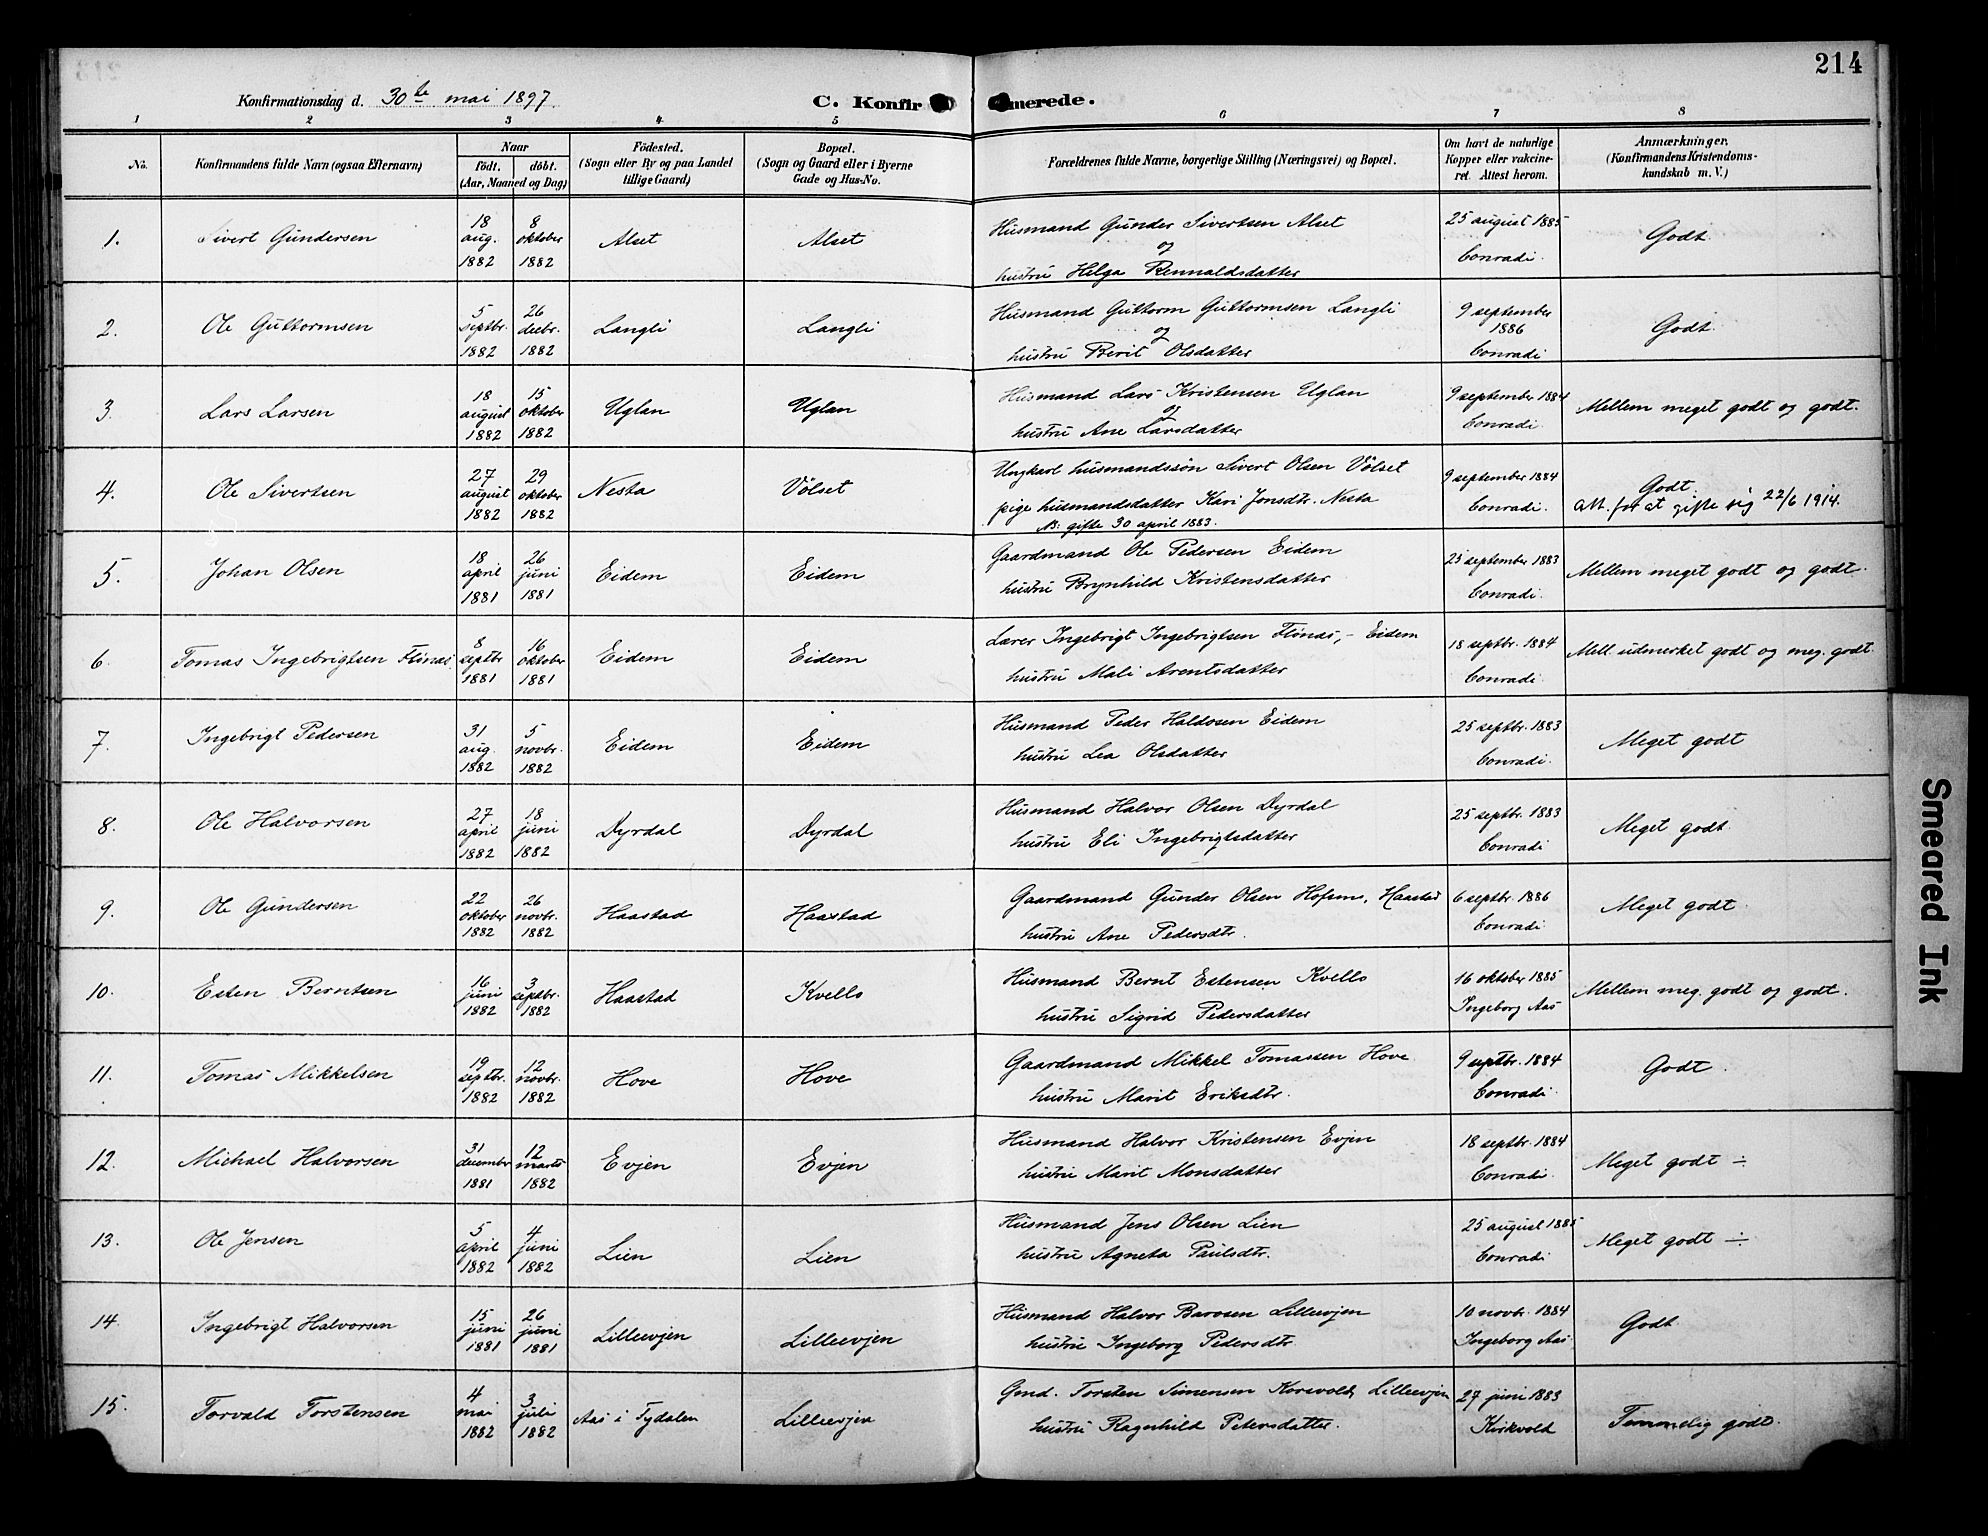 214
Konfirmationsdag d. 30te mai 1897.
C. Konfirmerede.
1 2 3 4 5 6 7 8
No.
Konfirmandens fulde Navn (ogsaa Efternavn)
Naar
født. døbt.
(Aar, Maaned og Dag)
Fødested.
(Sogn eller By og paa Landet
tillige Gaard)
Bopæl.
(Sogn og Gaard eller i Byerne
Gade og Hus-No.
Forældrenes fulde Navne, borgerlige Stilling (Næringsvei) og Bopæl.
Om havt de naturlige
Kopper eller vakcine-
ret. Attest herom.
Anmærkninger.
(Konfirmandens Kristendoms-
kundskab m. V.)
1. Sivert Gundersen 18 aug. 1882 8 oktober 1882 Alset Alset
Husmand Gunder Sivertsen Alset
og
hustru Helga Rennaldsdatter
25 august 1885
Conradi.
Godt.
2. Ole Guttormsen 5 septbr. 1882 26 decbr. 1882 Langli Langli
Husmand Guttorm Guttormsen Langli
og
hustru Berit Olsdatter
9 september
1886
Conradi
Godt.
3. Lars Larsen 18 august 1882 15 oktober 1882 Uglan Uglan
Husmand Lars Kristensen Uglan
og
hustru Ane Larsdatter
9 september 1884
Conradi.
Mellem meget godt og godt.
4. Ole Sivertsen 27 august 1882 29 oktober 1882 Nesta Völset
Ungkarl husmandssön Sivert Olsen Völset
pige husmandsdatter Kari Jonsdtr. Nesta
N: gifte 30 april 1883.
9 september 1884
Conradi.
Godt.
Att. for at gifte sig 22/6 1914.
5. Johan Olsen 18 april 1881 26 juni 1881 Eidem Eidem
Gaardmand Ole Pedersen Eidem
hustru Brynhild Kristensdatter
25 september 1883
Conradi.
Mellem meget godt og godt.
6. Tomas Ingebrigtsen Flönas 8 septbr 1881 16 oktober 1881 Eidem Eidem
Lærer Ingebrigt Ingebrigtsen Flönas, - Eidem
hustru Mali Arentsdatter
18 septbr. 1884
Conradi.
Mell. udmerket godt og meg. godt.
7. Ingebrigt Pedersen 31 aug. 1882 5 novbr. 1882 Eidem Eidem
Husmand Peder Haldosen Eidem
hustru Lea Olsdatter
25 septbr. 1883
Conradi.
Meget godt
8. Ole Halvorsen 27 april 1882 18 juni 1882 Dyrdal Dyrdal
Husmand Halvor Olsen Dyrdal
hustru Eli Ingebrigtsdatter
25 septbr. 1883
Conradi
Meget godt.
9. Ole Gundersen 22 oktober 1882 26 novbr. 1882 Haastad Haastad
Gaardmand Gunder Olsen Hofsmo, Haastad
hustru Ane Pedersdtr.
6 septbr. 1886
Conradi.
Meget godt.
10. Esten Berntsen 16 juni 1882 3 septbr. 1882 Haastad Kvello
Husmand Bernt Estensen Kvello
hustru Sigrid Pedersdatter
16 oktober 1885
Ingeborg Aas
Mellem meg. godt og godt.
11. Tomas Mikkelsen 19 septbr. 1882 12 novbr. 1882 Hove Hove
Gaardmand Mikkel Tomassen Hove
hustru Marit Eriksdtr.
9 septbr. 1884
Conradi.
Godt.
12. Michael Halvorsen 31 december 1881 12 marts 1882 Evjen Evjen
Husmand Halvor Kristensen Evjen
hustru Marit Monsdatter
18 septbr. 1884
Conradi.
Meget godt ÷
13. Ole Jensen 5 april 1882 4 juni 1882 Lien Lien
Husmand Jens Olsen Lien
hustru Agneta Paulsdtr.
25 august 1885
Conradi
Meget godt ÷
14. Ingebrigt Halvorsen 15 juni 1881 26 juni 1881 Lilleevjen Lilleevjen
Husmand Halvor Barosen Lilleevjen
hustru Ingeborg Pedersdtr.
10 novbr. 1884
Ingeborg Aas
Godt
15. Torvald Torstensen 4 mai 1882 3 juli 1882 Aas i Tydalen Lilleevjen
Gmd. Torsten Simensen Korsvold, Lilleevjen
hustru Ragnhild Petersdatter.
27 juni 1883
Kirkvold
Temmelig godt.
Smeared Ink